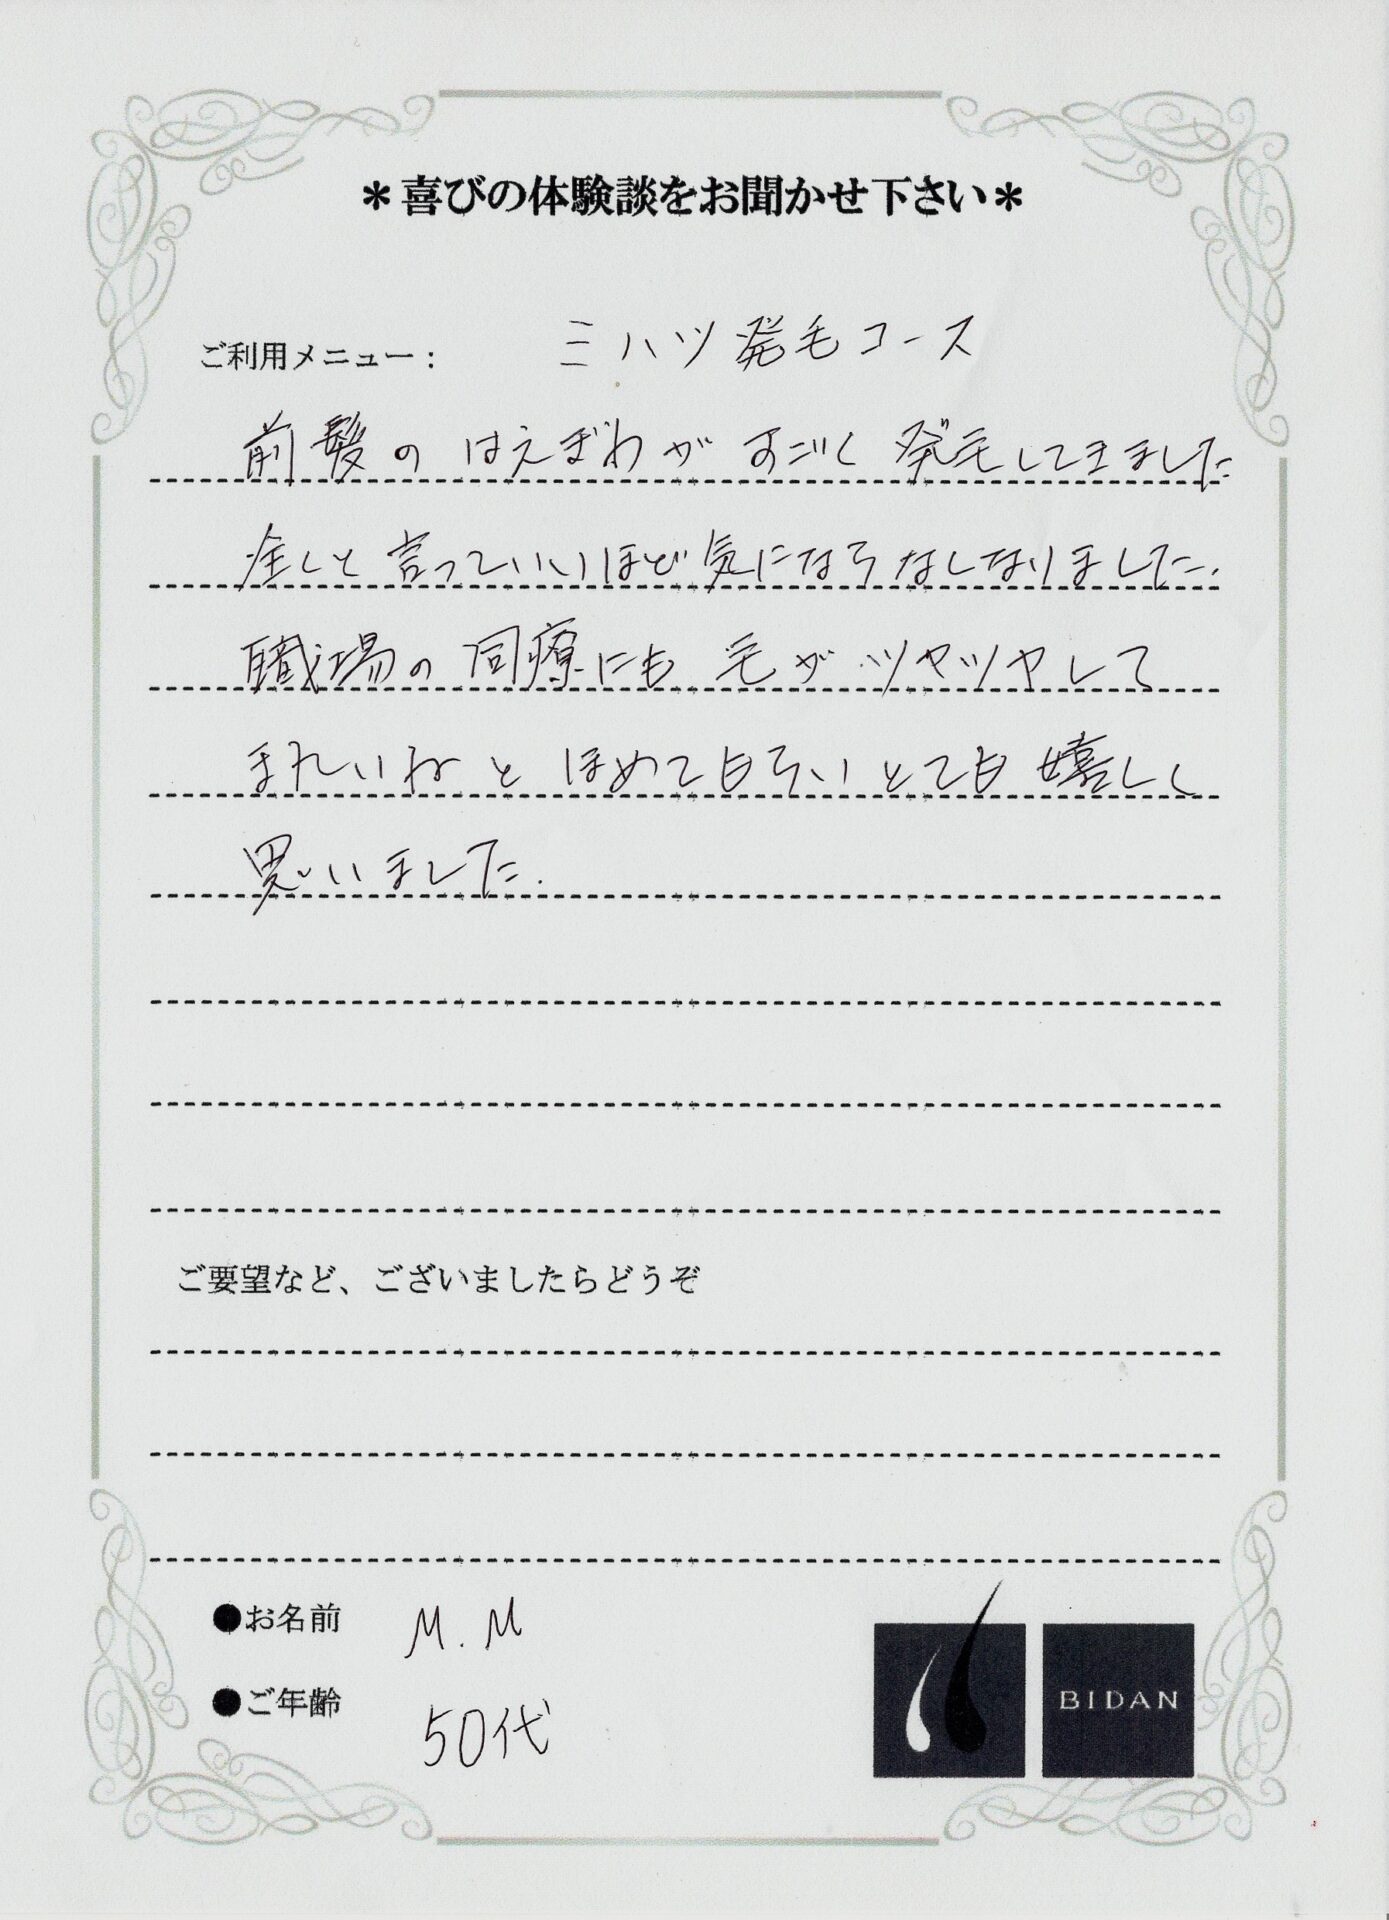 ＊喜びの体験談をお聞かせ下さい＊
ご利用メニュー： ミハツ発毛コース
前髪の はえぎわが すごく 発毛してきました
全しと 言っていいほど 気にならなしなりました.
職場の 同療にも 毛が ツヤツヤして
きれいねと ほめてもらい とても 嬉しく
思いました.
ご要望など、ございましたらどうぞ
●お名前 M.M
●ご年齢 50代
BIDAN